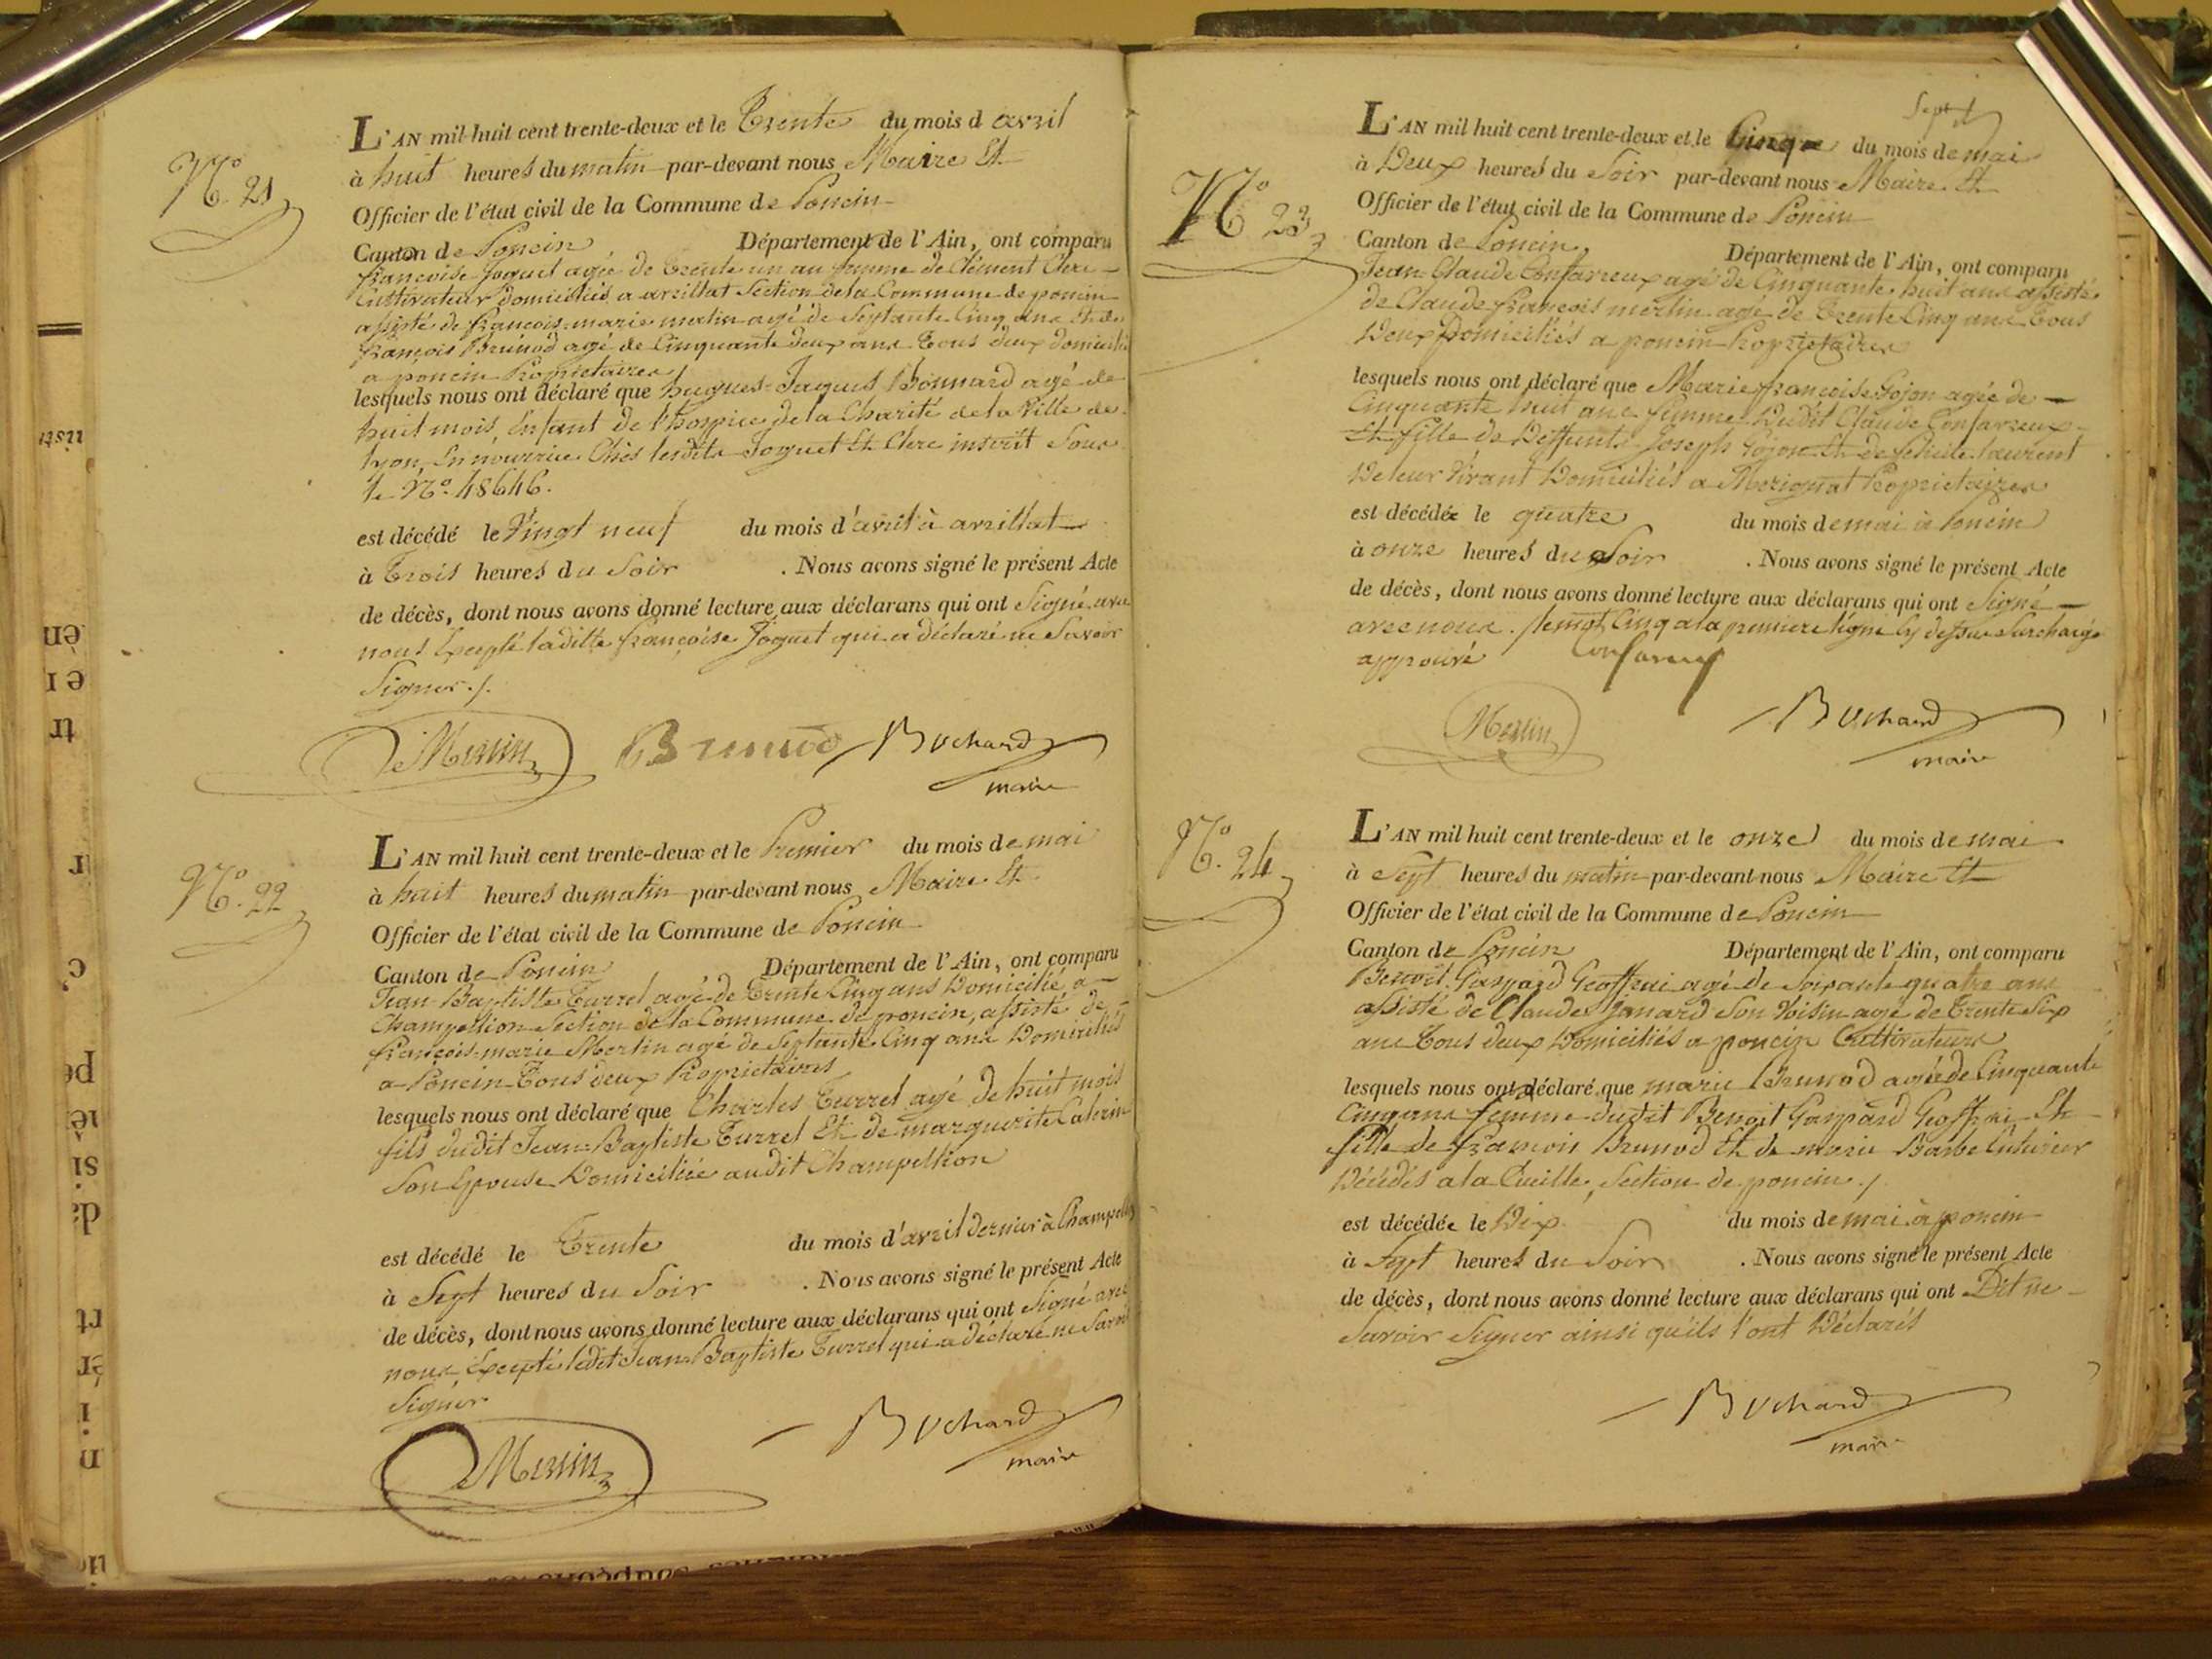 N.° 21
L'AN mil huit cent trente-deux et le Trente du mois d avril
à huit heures du matin par-devant nous Maire Et
Officier de l'état civil de la Commune de Poncin
Canton de Poncin Département de l'Ain, ont comparu
francoise Joguet agée de Trente un an femme de Clément Clerc
Cultivateur domiciliés a arzillat Section de la Commune de poncin
assisté de francois-marie merlin agé de Septante Cinq ans Et de
françois Brunod agé de Cinquante deux ans Tous deux Domiciliés
a poncin Propriétaires
lesquels nous ont déclaré que hugues-Jaques Bonnard agé de
huit mois, Enfant de l'hospice de la Charité de la Ville de
lyon, En nourrice Chés lesdits Joguet Et Clerc inscrit Sous
le N.° 48646.
est décédé le Vingt neuf du mois d'avril à arzillat
à Trois heures du Soir . Nous avons signé le présent Acte
de décès, dont nous avons donné lecture aux déclarans qui ont Signé avec
nous Excepté laditte françoise Joguet qui a déclaré ne Savoir
Signer ./.
Merlin Brunod Bochard
maire
N.° 22
L'AN mil huit cent trente-deux et le Premier du mois de mai
à huit heures du matin par-devant nous Maire Et
Officier de l'état civil de la Commune de Poncin
Canton de Poncin Département de l'Ain, ont comparu
Jean-Baptiste Turrel agé de Trente Cinq ans Domicilié a
Champeillon Section de la Commune de poncin, assisté de
françois-marie Merlin agé de Septante Cinq ans Domiciliés
a Poncin Tous deux Propriétaires
lesquels nous ont déclaré que Charles Turrel agé de huit mois
fils dudit Jean-Baptiste Turrel Et de marguerite
Son Epouse Domiciliée audit Champeillion
est décédé le Trente du mois d'avril dernier à
à Sept heures du Soir . Nous avons signé le présent Acte
de décès, dont nous avons donné lecture aux déclarans qui ont Signé avec
nous Excepté ledit Jean-Baptiste Turrel qui a déclaré ne Savoir
Signer
Merlin Bochard
maire
Sept
N.° 23
L'AN mil huit cent trente-deux et le Cinq du mois de mai
à Deux heures du Soir par-devant nous Maire Et
Officier de l'état civil de la Commune de Poncin
Canton de Poncin, Département de l'Ain, ont comparu
Jean-Claude Confavreux agé de Cinquante huit ans assisté
de Claude françois merlin agé de Trente Cinq ans Tous
Deux Domiciliés a poncin Propriétaires
lesquels nous ont déclaré que Marie francoise Gojon agée de
Cinquante huit ans femme Dudit Claude Confavreux
Et fille de Deffunts Joseph Gojon Et de laurent
De leur Vivant Domiciliés a Merignat Propriétaires
est décédée le quatre du mois de mai à Poncin
à onze heures du Soir . Nous avons signé le présent Acte
de décès, dont nous avons donné lecture aux déclarans qui ont Signé
avec nous. / le mot Cinq a la premiere ligne Cy dessus Surchargé
approuvé Confavreux
Merlin Bochard
maire
N.° 24
L'AN mil huit cent trente-deux et le onze du mois de mai
à Sept heures du matin par-devant nous Maire Et
Officier de l'état civil de la Commune de Poncin
Canton de Poncin Département de l'Ain, ont comparu
Benoit Gaspard Geoffrai agé de Soixante quatre ans
assisté de Claude Janard Son Voisin agé de Trente Six
ans Tous deux Domiciliés a poncin Cultivateurs
lesquels nous ont déclaré que marie Brunod agée de Cinquante
Cinq ans femme dudit Benoit Gaspard Geoffrai Et
fille de françois Brunod Et de marie Barbe
Décédés a la Cueille, Section de poncin ./
est décédée le Dix du mois de mai a poncin
à Sept heures du Soir . Nous avons signé le présent Acte
de décès, dont nous avons donné lecture aux déclarans qui ont Dit ne
Savoir Signer ainsi qu'ils l'ont Déclarés
Bochard
maire